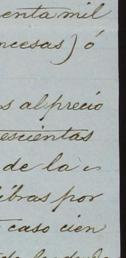 enta mil
ncesas) ó
s al precio
escientas
de la
libras por
caso cien